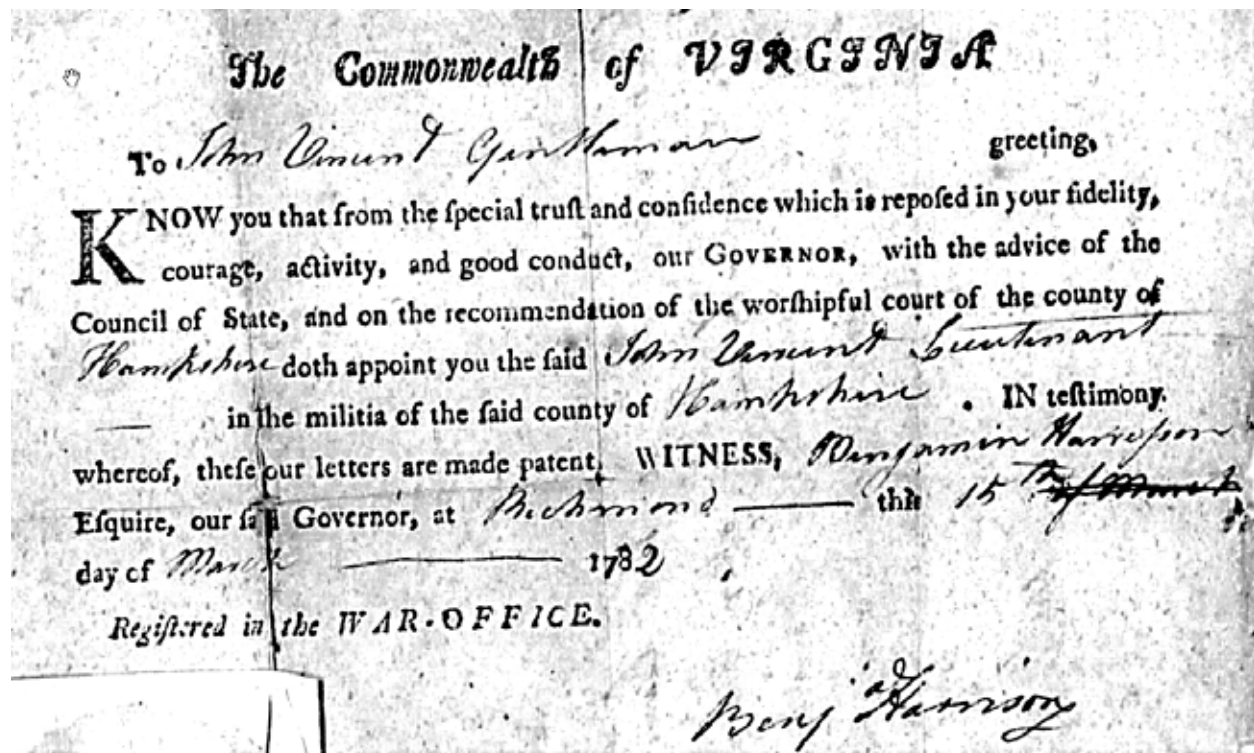 The Commonwealth of VIRGINIA
To John Vincent Gentleman greeting,
KNOW you that from the ſpecial truſt and confidence which is repoſed in your fidelity,
courage, activity, and good conduct, our GOVERNOR, with the advice of the
Council of State, and on the recommendation of the worſhipful court of the county of
Hampshire doth appoint you the ſaid John Vincent Lieutenant
in the militia of the ſaid county of Hampshire . IN teſtimony
whereof, theſe our letters are made patent, WITNESS, Benjamin Harriſon
Eſquire, our ſaid Governor, at Richmond — the 15th of March
day of March — 1782
Regiſtered in the WAR-OFFICE.
Benj Harrison